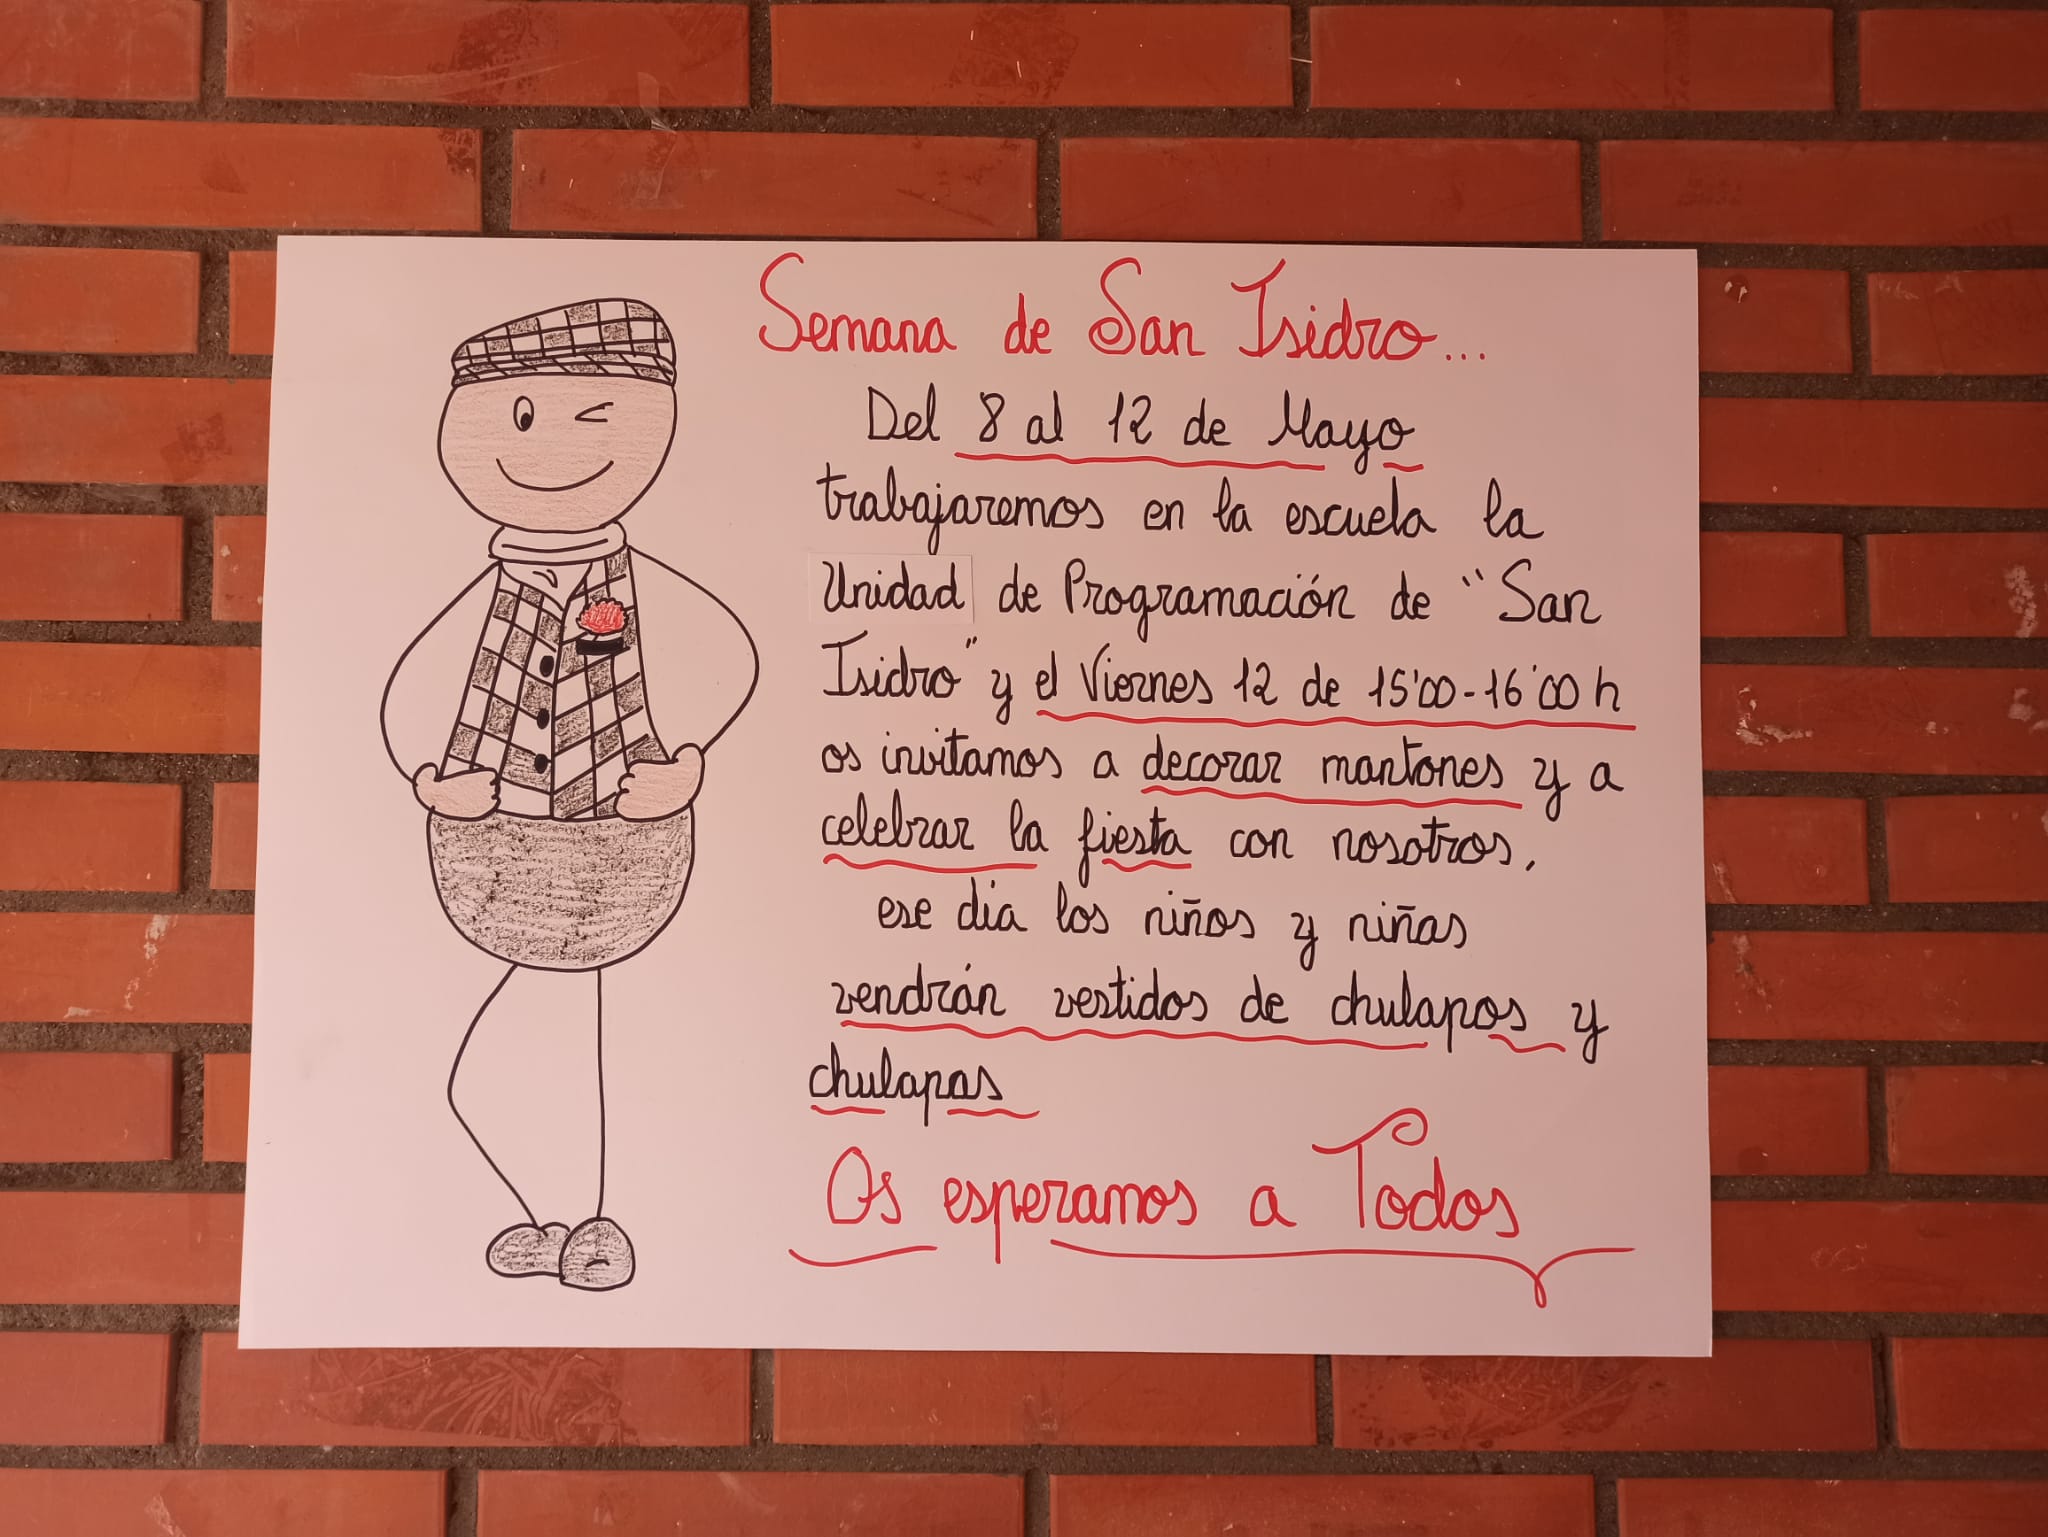 Semana de San Isidro...
Del 8 al 12 de Mayo
trabajaremos en la escuela la
Unidad de Programación de "San
Isidro" y el Viernes 12 de 15'00-16'00 h
os invitamos a decorar mantones y a
celebrar la fiesta con nosotros.
ese dia los niños y niñas
vendrán vestidos de chulapos y
chulapas
Os esperamos a Todos